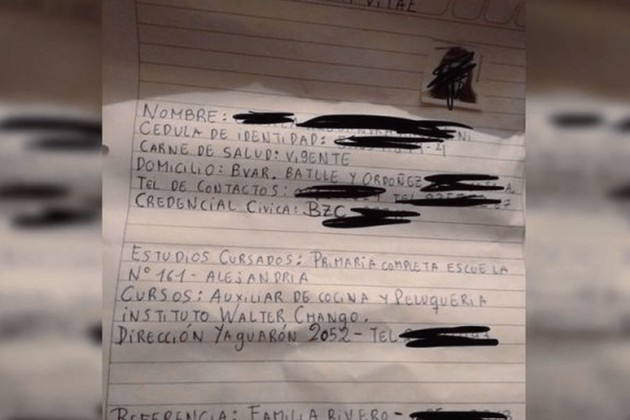 VITAE
NOMBRE:
CEDULA DE IDENTIDAD:
CARNE DE SALUD: VIGENTE
DOMICILIO: BVAR. BATLLE Y ORDOÑEZ
TEL DE CONTACTOS:
CREDENCIAL CIVICA: BZC
ESTUDIOS CURSADOS: PRIMARIA COMPLETA ESCUELA
Nº 161 - ALEJANDRIA
CURSOS: AUXILIAR DE COCINA Y PELUQUERIA
INSTITUTO WALTER CHANGO.
DIRECCIÓN YAGUARÓN 2052 - TEL
REFERENCIA: FAMILIA RIVERO -